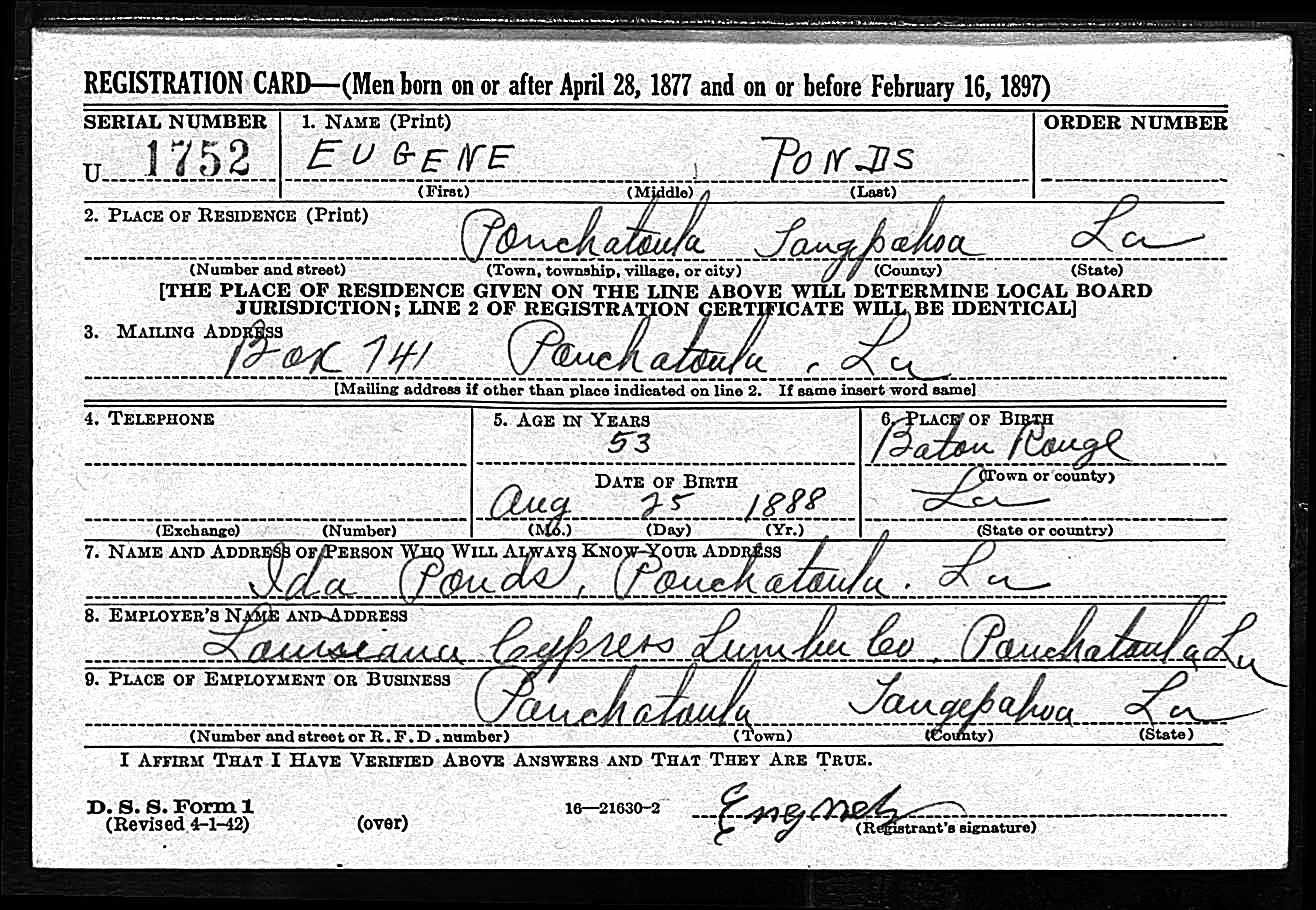 REGISTRATION CARD—(Men born on or after April 28, 1877 and on or before February 16, 1897)
SERIAL NUMBER 1. NAME (Print) ORDER NUMBER
U 1752 EUGENE PONDS
(First) (Middle) (Last)
2. PLACE OF RESIDENCE (Print)
Ponchatoula Tangpahoa La
(Number and street) (Town, township, village, or city) (County) (State)
[THE PLACE OF RESIDENCE GIVEN ON THE LINE ABOVE WILL DETERMINE LOCAL BOARD
JURISDICTION; LINE 2 OF REGISTRATION CERTIFICATE WILL BE IDENTICAL]
3. MAILING ADDRESS
Box 741 Ponchatoula, La
[Mailing address if other than place indicated on line 2. If same insert word same]
4. TELEPHONE 5. AGE IN YEARS 6. PLACE OF BIRTH
53 Baton Rouge
DATE OF BIRTH (Town or county)
Aug 25 1888 La
(Exchange) (Number) (Mo.) (Day) (Yr.) (State or country)
7. NAME AND ADDRESS OF PERSON WHO WILL ALWAYS KNOW YOUR ADDRESS
Ida Ponds, Ponchatoula. La
8. EMPLOYER'S NAME AND ADDRESS
Louisiana Cypress Lumber Co. Ponchatoula La
9. PLACE OF EMPLOYMENT OR BUSINESS
Ponchatoula Tangepahoa La
(Number and street or R. F. D. number) (Town) (County) (State)
I AFFIRM THAT I HAVE VERIFIED ABOVE ANSWERS AND THAT THEY ARE TRUE.
D. S. S. Form 1
(Revised 4-1-42) (over) 16—21630-2
(Registrant's signature)